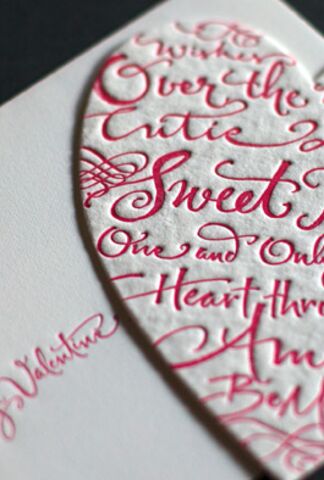 Wishes
Over the
Cutie
Sweet
One and Only
Heart thr
Am
Be M
Valentine